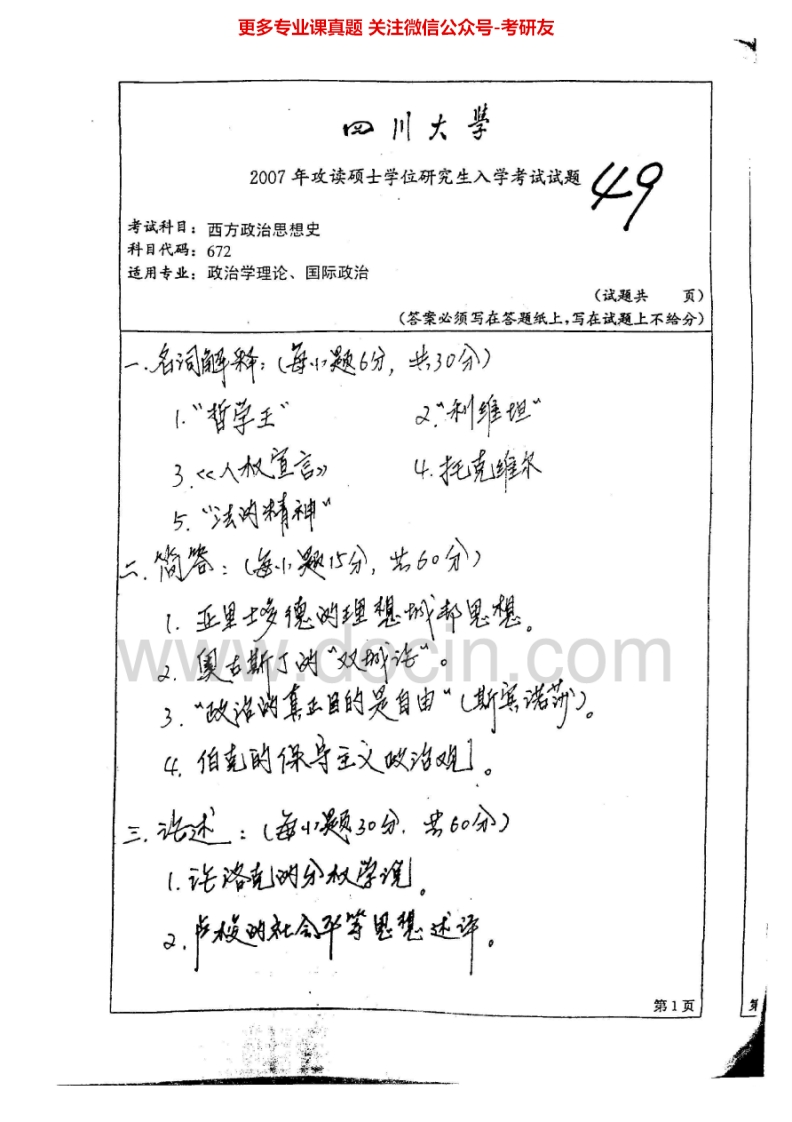 更多专业课真题 关注微信公众号-考研友
四川大学
2007 年攻读硕士学位研究生入学考试试题
49
考试科目：西方政治思想史
科目代码：672
适用专业：政治学理论、国际政治
（试题共 页）
（答案必须写在答题纸上，写在试题上不给分）
一.名词解释：（每小题6分，共30分）
1."哲学王" 2."利维坦"
3.《人权宣言》 4.托克维尔
5."法的精神"
二.简答：（每小题15分，共60分）
1. 亚里士多德的理想城邦思想。
2. 奥古斯丁的"双城论"。
3. "政治的真正目的是自由"（斯宾诺莎）。
4. 伯克的保守主义政治观。
www.docin.com
三.论述：（每小题30分.共60分）
1.论洛克的分权学说。
2.卢梭的社会平等思想述评。
第 1 页
第